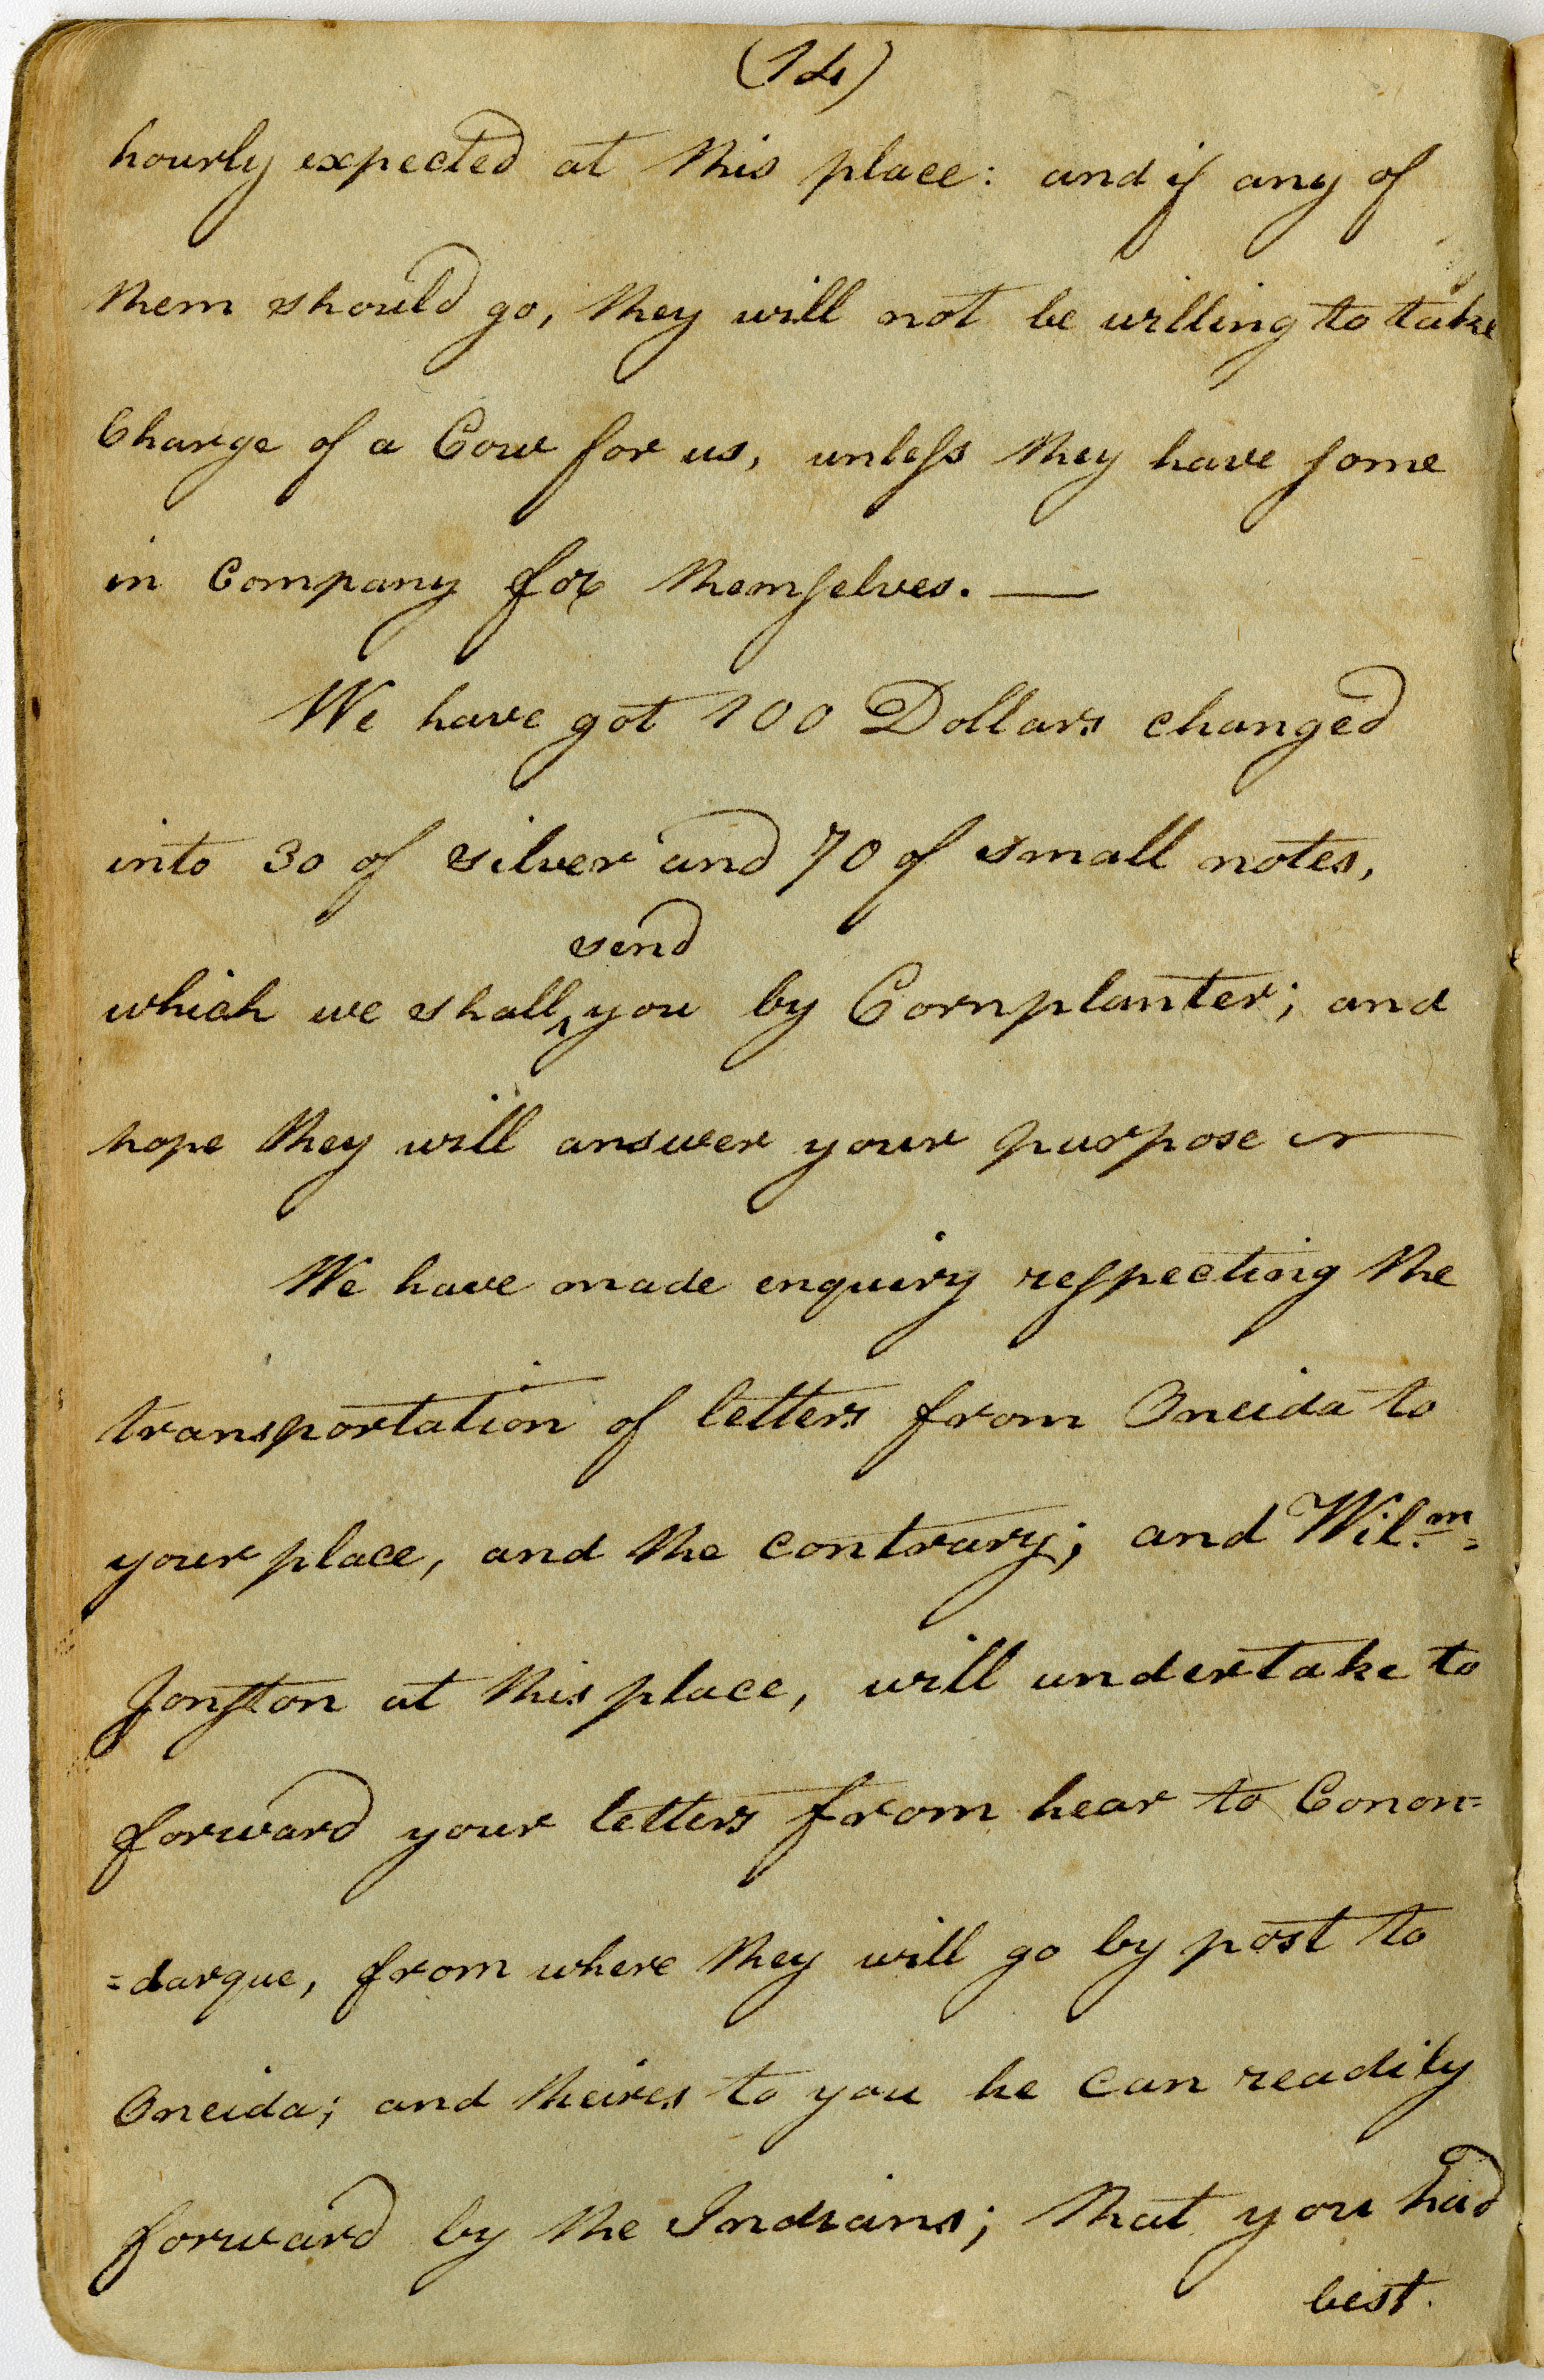 (14)
hourly expected at this place: and if any of
them should go, they will not be willing to take
Charge of a Cow for us, unleſs they have ſome
in Company for themſelves. —
We have got 100 Dollars changed
into 30 of silver and 70 of small notes,
send
which we shall ‸ you by Cornplanter; and
hope they will answer your purpose —
We have made enquiry reſpecting the
transportation of letters from Oneida to
your place, and the contrary; and Wil.m
Jonſton at this place, will undertake to
forward your letters from hear to Conon=
=darque, from where they will go by post to
Oneida; and theires to you he can readily
forward by the Indians; that you had
best.